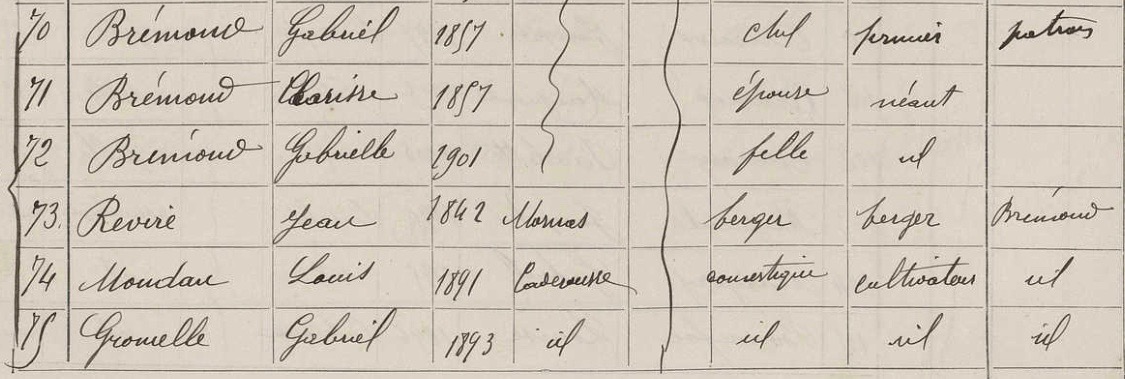 70 Brémond Gabriel 1857 chef fermier patron
71 Brémond Clarisse 1857 épouse néant
72 Brémond Gabrielle 1901 fille id
73. Reviré Jean 1842 Mornas berger berger Brémond
74 Moudau Louis 1891 Caderousse domestique cultivateur id
75 Gromelle Gabriel 1893 id id id id